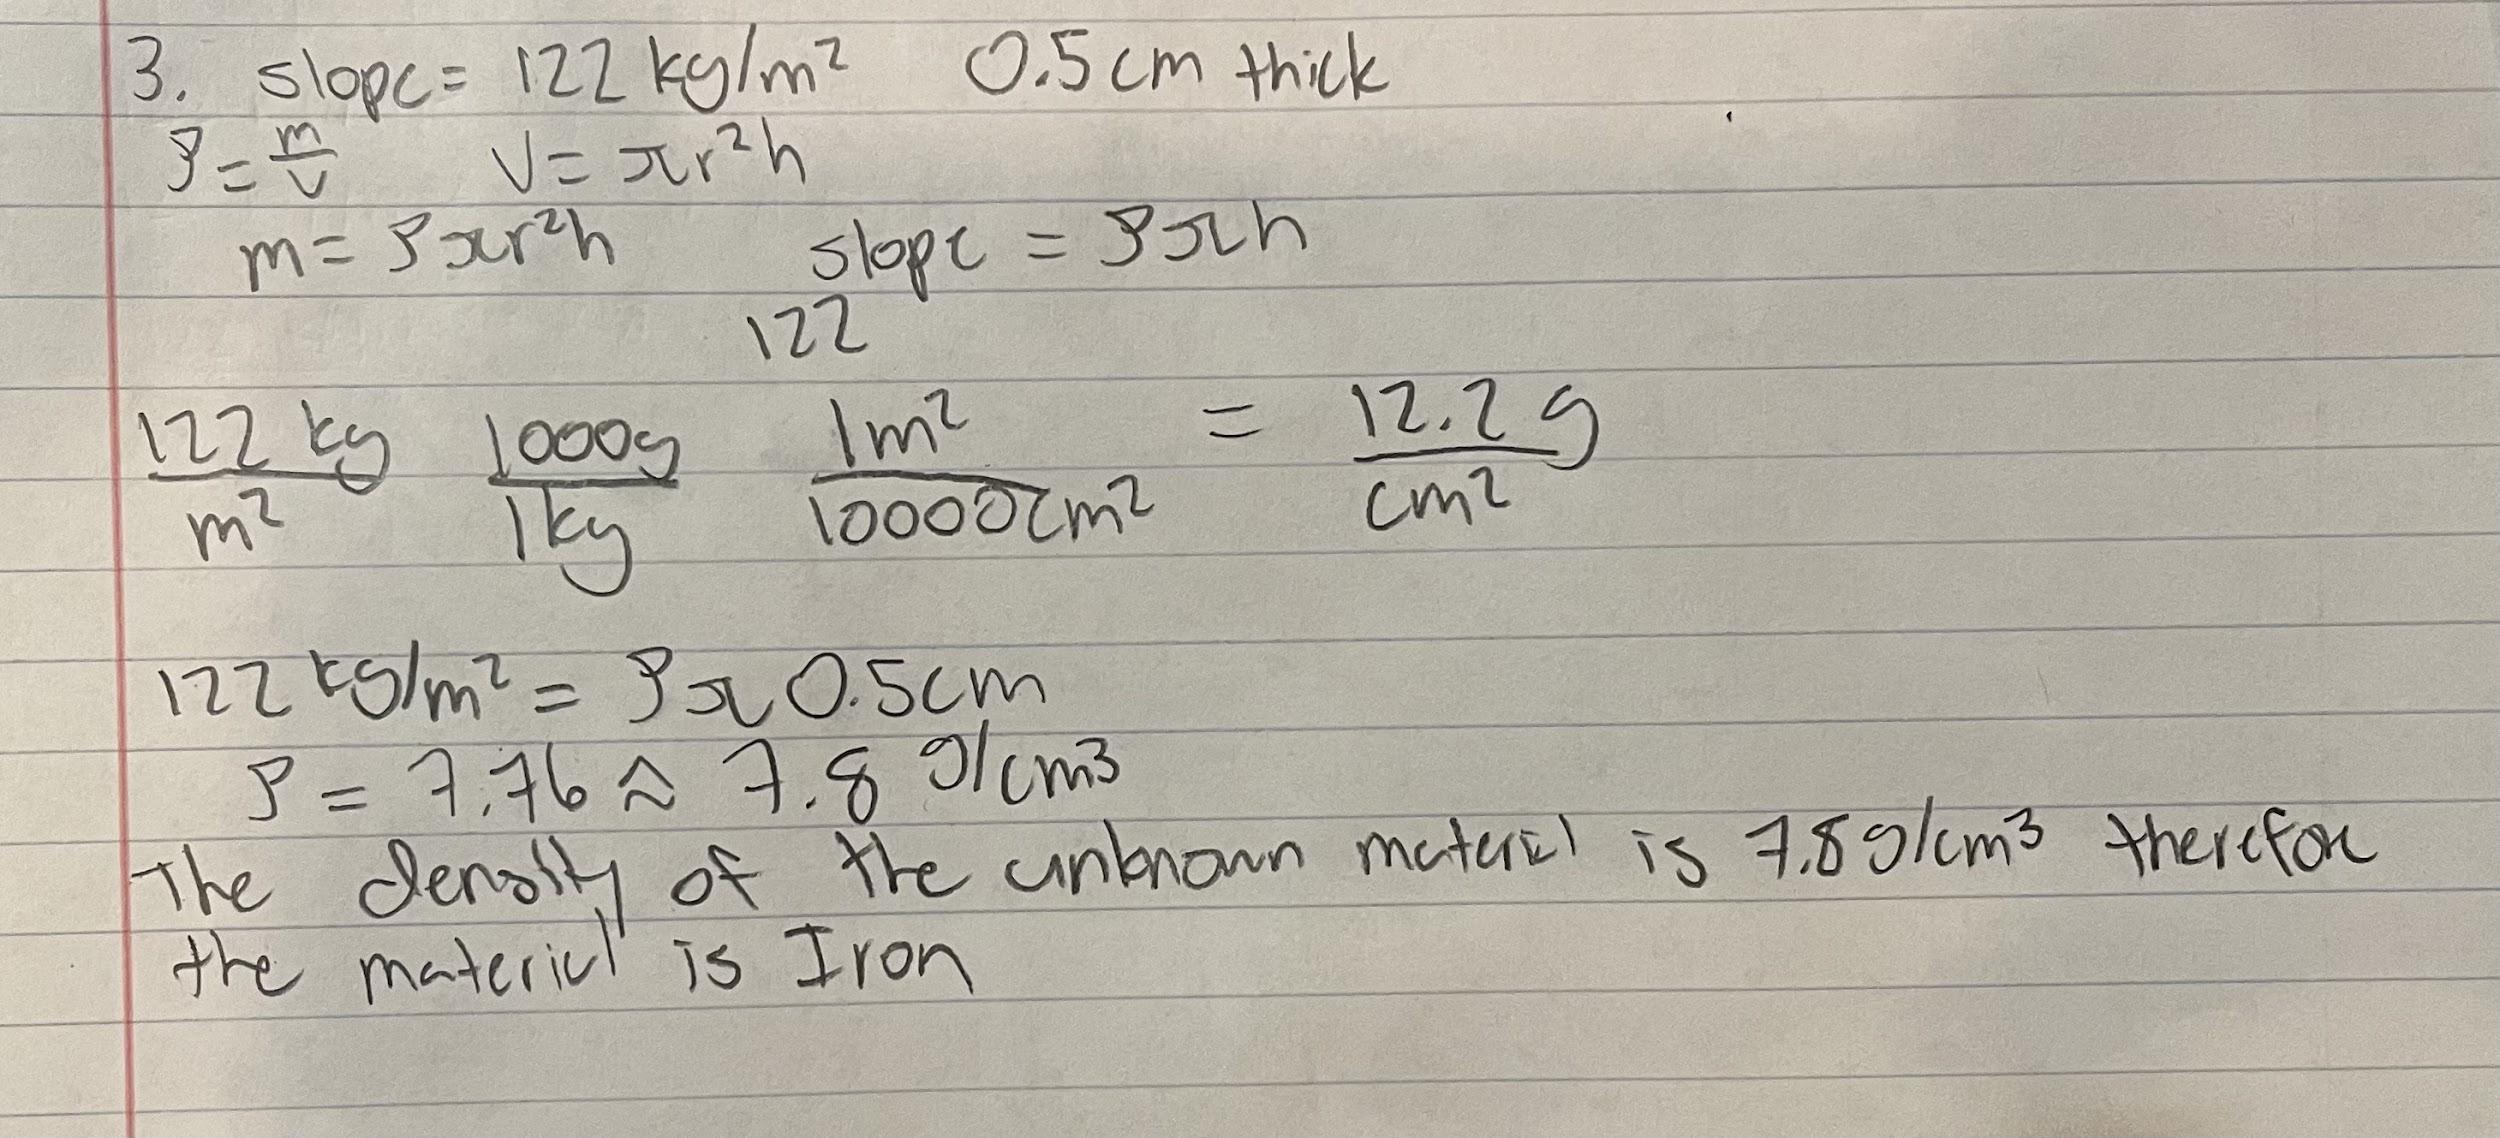 3. slope = 122 kg/m² 0.5 cm thick
ρ = m/v V = πr²h
m = ρπr²h slope = ρπh
122
122 kg/m² 1000g/1kg 1m²/10000cm² = 12.2 g/cm²
122 kg/m² = ρπ 0.5cm
ρ = 7.76 ≈ 7.8 g/cm³
The density of the unknown material is 7.8 g/cm³ therefore
the material is Iron